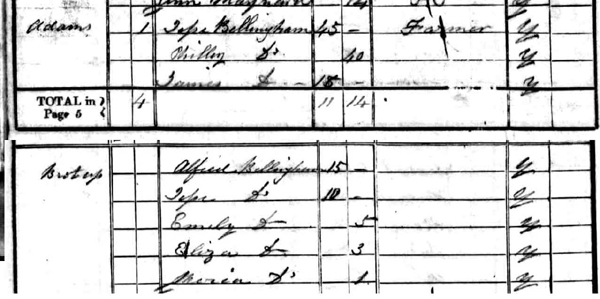 Adams 1 Jesse Bellingham 45 – Farmer Y
Philly Do 40 Y
James Do – 15 – Y
TOTAL in Page 5 } 4 11 14
Brot up Alfred Bellingham 15 – Y
Jesse Do 10 – Y
Emely Do 5 Y
Eliza Do 3 Y
Maria Do 1 Y